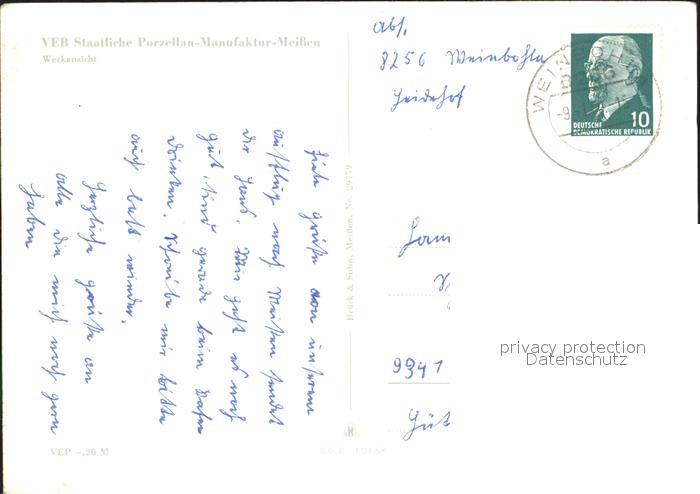 VEB Staatliche Porzellan-Manufaktur-Meißen
Werkansicht
Viele Grüße von unserem
Ausflug nach Meißen sendet
Dir Hans. Mir geht es noch
gut, sind gerade beim Kaffee
trinken. Schreibe mir bitte
auch bald wieder.
Herzliche Grüße an
alle die mich noch gern
haben
VEP -.20 M
Brück & Sohn, Meißen, Nr. 29779
Abs.
8256 Weinböhla
Heidehof
WEINBÖHLA
a
10
DEUTSCHE
DEMOKRATISCHE REPUBLIK
9341
privacy protection
Datenschutz